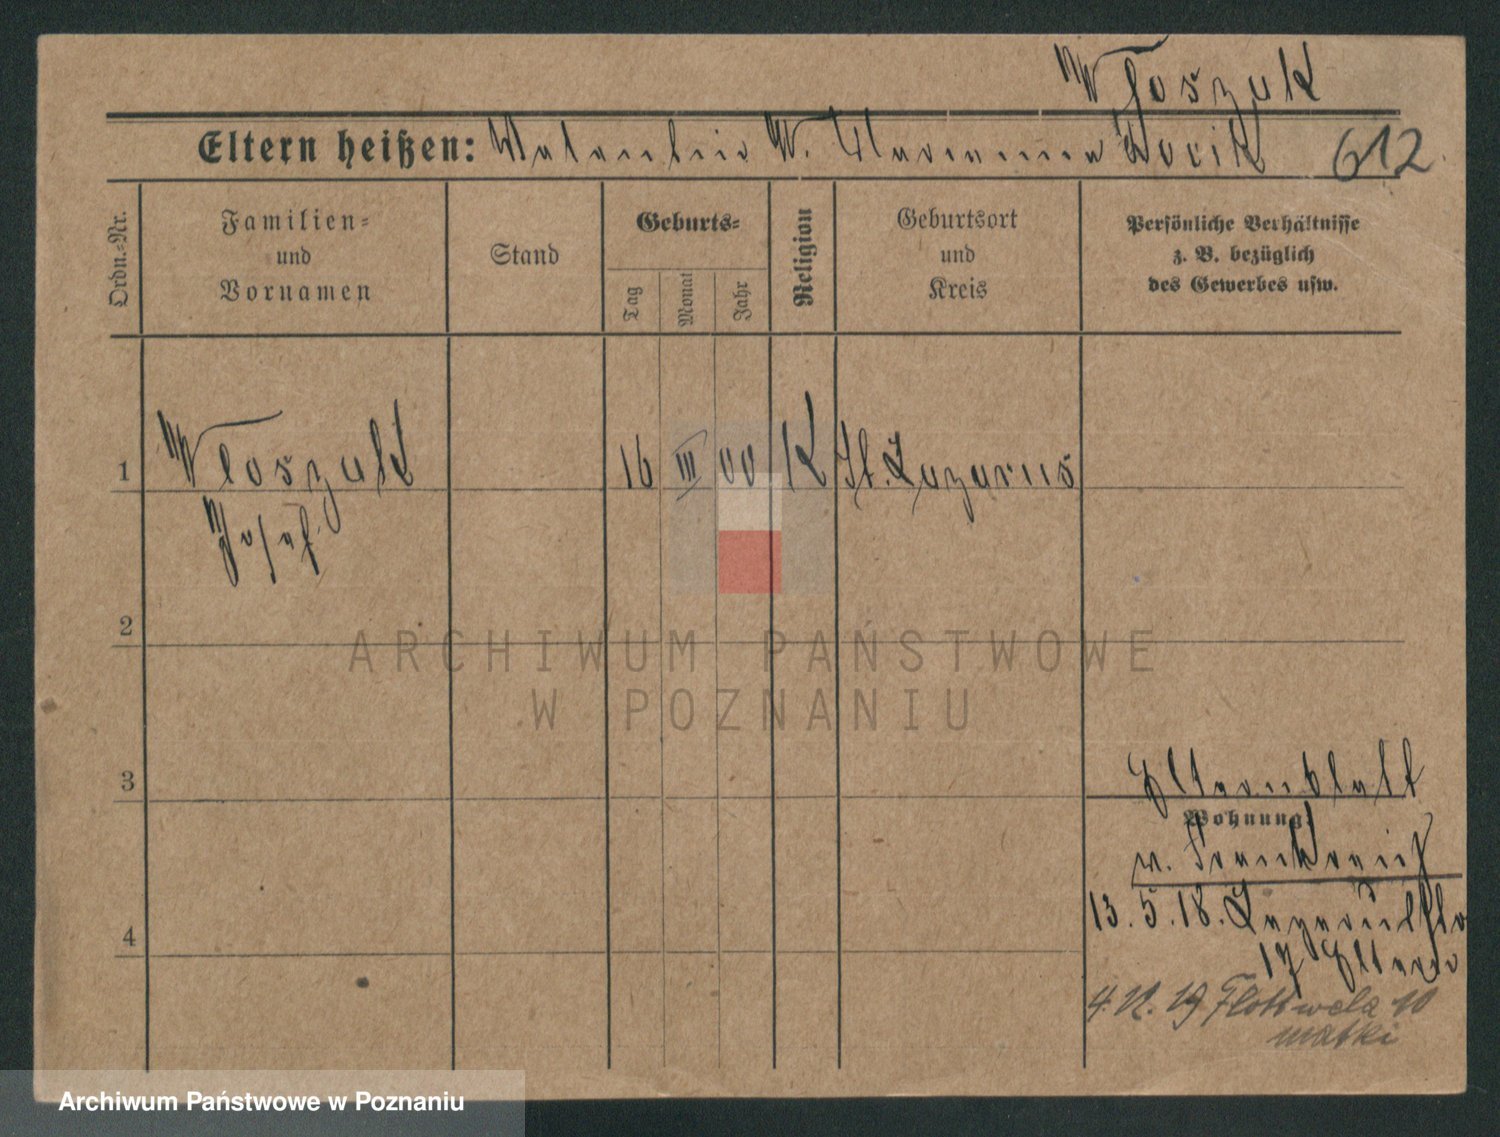 Wloszak
Eltern heißen: Valentin W. Marianna Wocik
612
Ordn.-Nr.
Familien-
und
Vornamen
Stand
Geburts-
Tag
Monat
Jahr
Religion
Geburtsort
und
Kreis
Persönliche Verhältnisse
z. B. bezüglich
des Gewerbes usw.
1 Wloszak 16 III 00 K St. Lazarus
Josef
2
ARCHIWUM PAŃSTWOWE
W POZNANIU
3
Elternblatt
Wohnung:
v. Frankreich
13.5.18. Lazarusstr
4
17 Eltern
4. 19 Flottwela 10
matki
Archiwum Państwowe w Poznaniu